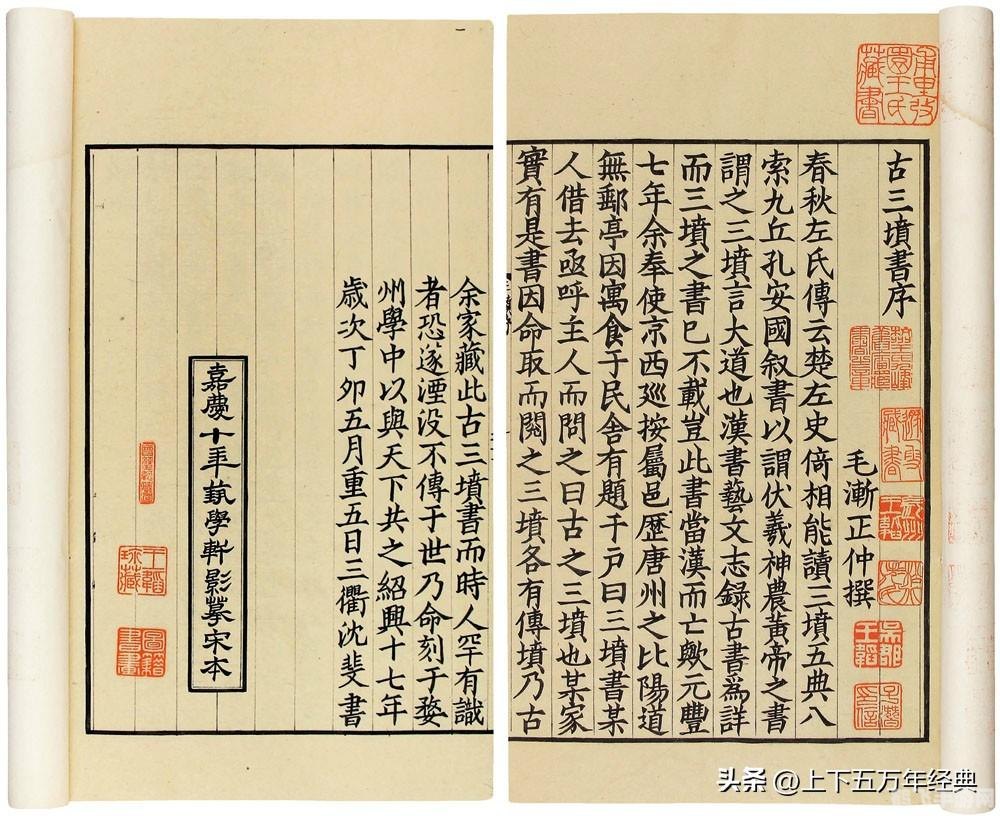 古三墳書序
毛漸正仲撰
春秋左氏傳云楚左史倚相能讀三墳五典八
索九丘孔安國叙書以謂伏羲神農黃帝之書
謂之三墳言大道也漢書藝文志錄古書為詳
而三墳之書已不載豈此書當漢而亡歟元豐
七年余奉使京西廵按屬邑歷唐州之比陽道
無郵亭因寓食于民舍有題于户曰三墳書某
人借去亟呼主人而問之曰古之三墳也某家
實有是書因命取而閱之三墳各有傳墳乃古
余家藏此古三墳書而時人罕有識
者恐遂湮没不傳于世乃命刻于婺
州學中以與天下共之紹興十七年
歲次丁卯五月重五日三衢沈斐書
嘉慶十年蓺學軒影摹宋本
頭条 @上下五万年经典